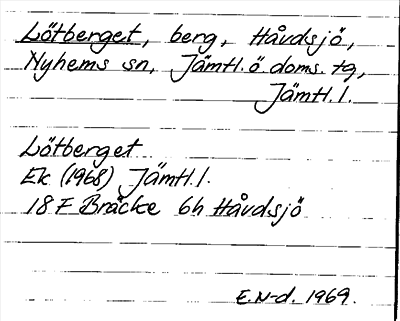 Lötberget, berg, Håvdsjö,
Nyhems sn, Jämtl. ö. doms. tg,
Jämtl. l.
Lötberget
Ek (1968) Jämtl. l.
18 F Bräcke 6h Håvdsjö
E. N-d. 1969.